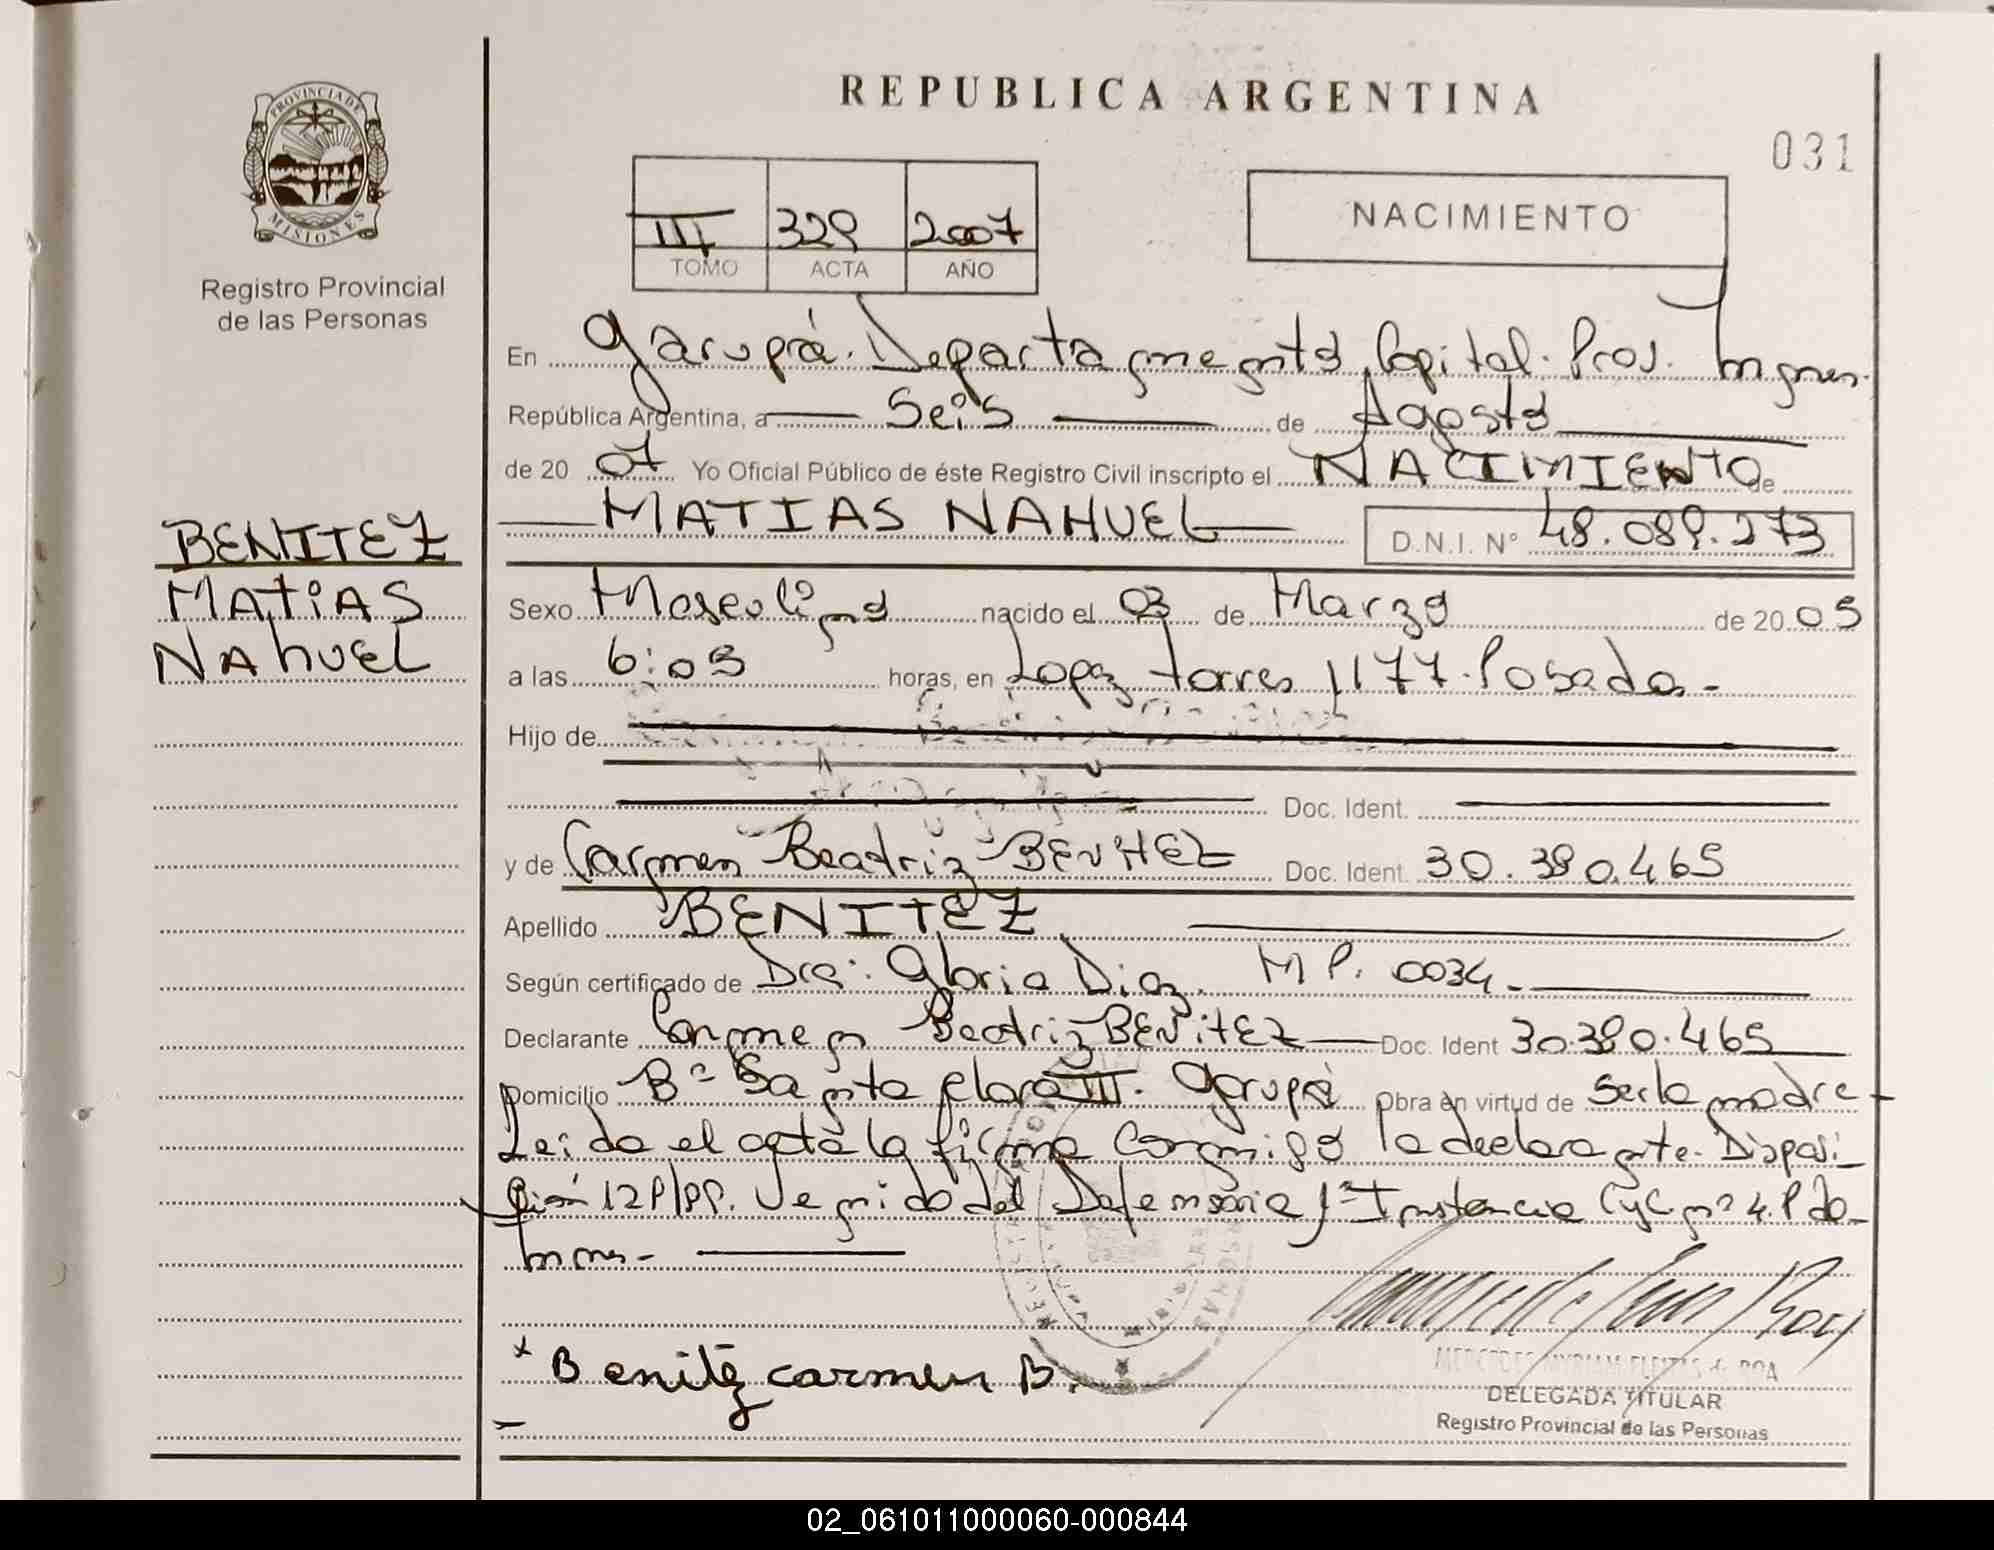 REPUBLICA ARGENTINA
031
PROVINCIA DE
MISIONES
Registro Provincial
de las Personas
III 329 2007
TOMO ACTA AÑO
NACIMIENTO
En Garupá. Departamento Capital. Prov. Mnes.
República Argentina, a Seis de Agosto
de 20 07 Yo Oficial Público de éste Registro Civil inscripto el NACIMIENTO de
MATIAS NAHUEL D.N.I. N° 48.089.273
BENITEZ
MATIAS
NAhUEL
Sexo Masculino nacido el 03 de Marzo de 20 05
a las 6:05 horas, en Lopez Torres 1177. Posadas-
Hijo de
Doc. Ident.
y de Carmen Beatriz BENITEZ Doc. Ident. 30.380.465
Apellido BENITEZ
Según certificado de Dra. Gloria Diaz. M P. 0034-
Declarante Carmen Beatriz BENITEZ Doc. Ident 30.380.465
Domicilio B° Santa Clara III. Garupá Obra en virtud de Ser la madre-
Leida el acta la firma conmigo la declarante. Disposi-
ción 129/99. Venido del Defensoria 1ª Instancia CyC nº 4. Pdo-
mnes-
* Benitez carmen B.
MERCEDES MYRIAM FLEITAS de ROA
DELEGADA TITULAR
Registro Provincial de las Personas
02_061011000060-000844